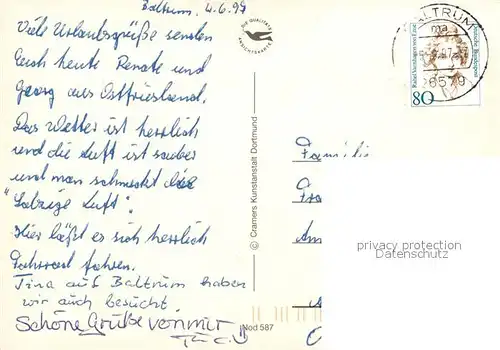 Baltrum, 4.6.97
Viele Urlaubsgrüße senden
Euch heute Renate und
Georg aus Ostfriesland.
Das Wetter ist herrlich
und die Luft ist sauber
und man schmeckt die
"Salzige Luft".
Hier läßt es sich herrlich
Fahrrad fahren.
Tina auf Baltrum haben
wir auch besucht
Schöne Grüße von mir
DIE QUALITÄTS
ANSICHTSKARTE
© Cramers Kunstanstalt Dortmund
Mod 587
BALTRUM
26579
Rahel Varnhagen von Ense
Deutsche Bundespost
80
Familie
privacy protection
Datenschutz